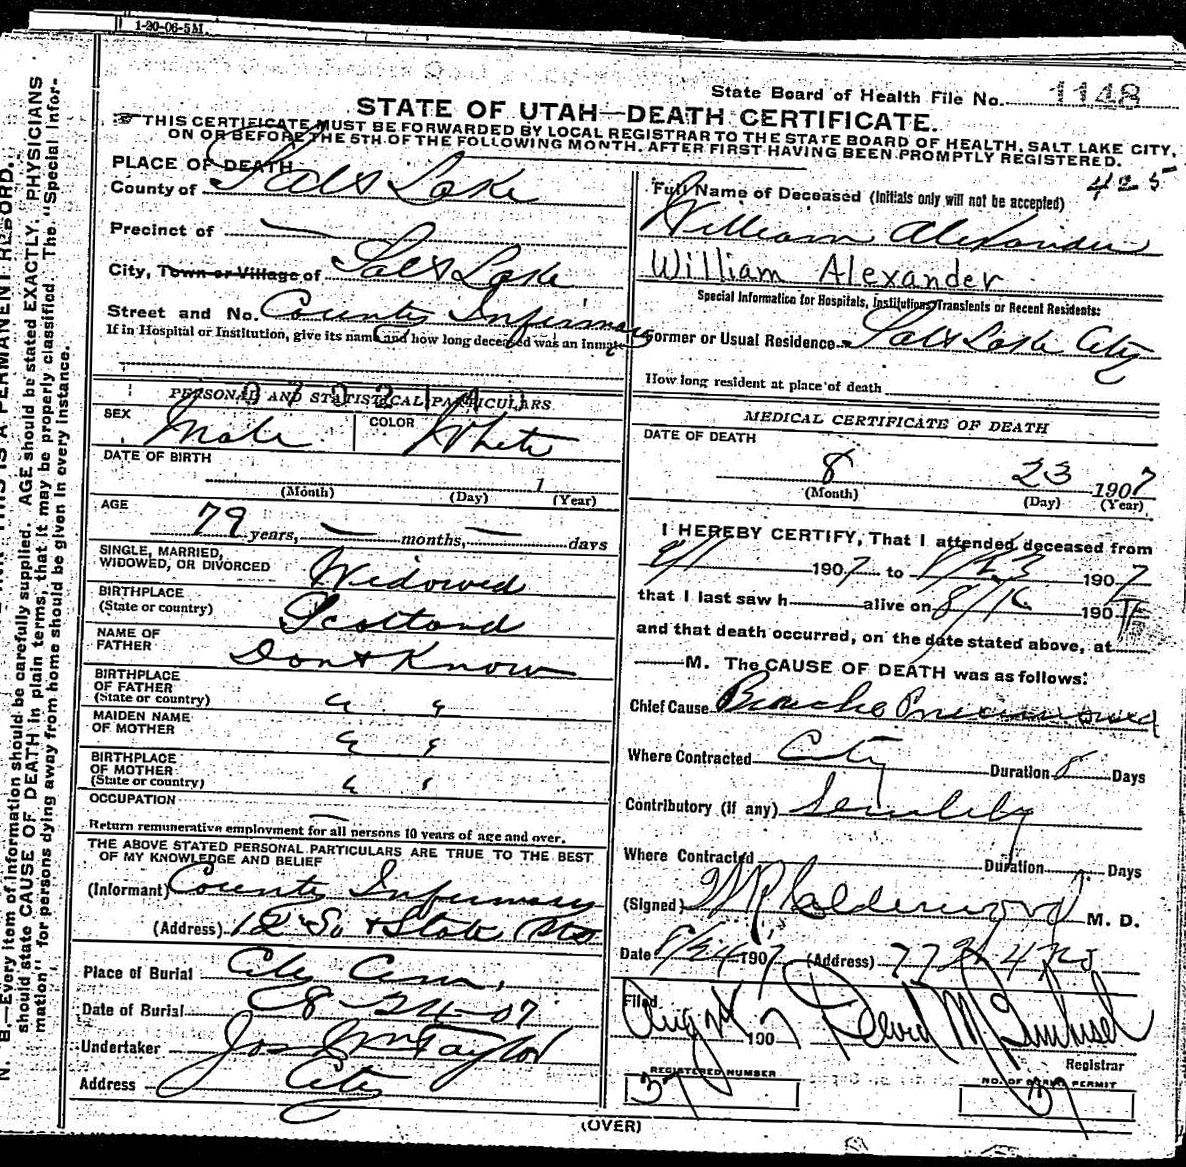 1-20-06-5M.
State Board of Health File No. 1148
STATE OF UTAH—DEATH CERTIFICATE.
THIS CERTIFICATE MUST BE FORWARDED BY LOCAL REGISTRAR TO THE STATE BOARD OF HEALTH, SALT LAKE CITY,
ON OR BEFORE THE 5TH OF THE FOLLOWING MONTH, AFTER FIRST HAVING BEEN PROMPTLY REGISTERED.
N. B.—Every item of information should be carefully supplied. AGE should be stated EXACTLY. PHYSICIANS
should state CAUSE OF DEATH in plain terms, that it may be properly classified. The "Special Infor-
mation" for persons dying away from home should be given in every instance.
PLACE OF DEATH
County of Salt Lake
Precinct of —
City, Town or Village of Salt Lake
Street and No. County Infirmary
If in Hospital or Institution, give its name and how long deceased was an inmate
PERSONAL AND STATISTICAL PARTICULARS
SEX Male COLOR White
DATE OF BIRTH
(Month) (Day) 1 (Year)
AGE
79 years, — months, — days
SINGLE, MARRIED,
WIDOWED, OR DIVORCED Widowed
BIRTHPLACE
(State or country) Scotland
NAME OF
FATHER Dont Know
BIRTHPLACE
OF FATHER
(State or country) " "
MAIDEN NAME
OF MOTHER " "
BIRTHPLACE
OF MOTHER
(State or country) " "
OCCUPATION —
Return remunerative employment for all persons 10 years of age and over.
THE ABOVE STATED PERSONAL PARTICULARS ARE TRUE TO THE BEST
OF MY KNOWLEDGE AND BELIEF
(Informant) County Infirmary
(Address) 12 So & State Sts
Place of Burial City Cem.
Date of Burial 8-24-07
Undertaker Jos Wm Taylor
Address City
425
Full Name of Deceased (Initials only will not be accepted)
William Alexander
William Alexander
Special Information for Hospitals, Institutions, Transients or Recent Residents:
Former or Usual Residence Salt Lake City
How long resident at place of death
MEDICAL CERTIFICATE OF DEATH
DATE OF DEATH
8 23 1907
(Month) (Day) (Year)
I HEREBY CERTIFY, That I attended deceased from
1907 to 8/23 1907
that I last saw h alive on 8/16 190
and that death occurred, on the date stated above, at
M. The CAUSE OF DEATH was as follows:
Chief Cause Broncho Pneumonia
Where Contracted City Duration 8 Days
Contributory (if any) Senility
Where Contracted Duration Days
(Signed) Calderwood M. D.
Date 8/24 1907 (Address)
Filed
Aug 24 1907 David M.
Registrar
REGISTERED NUMBER
37
NO. OF BURIAL PERMIT
37
(OVER)